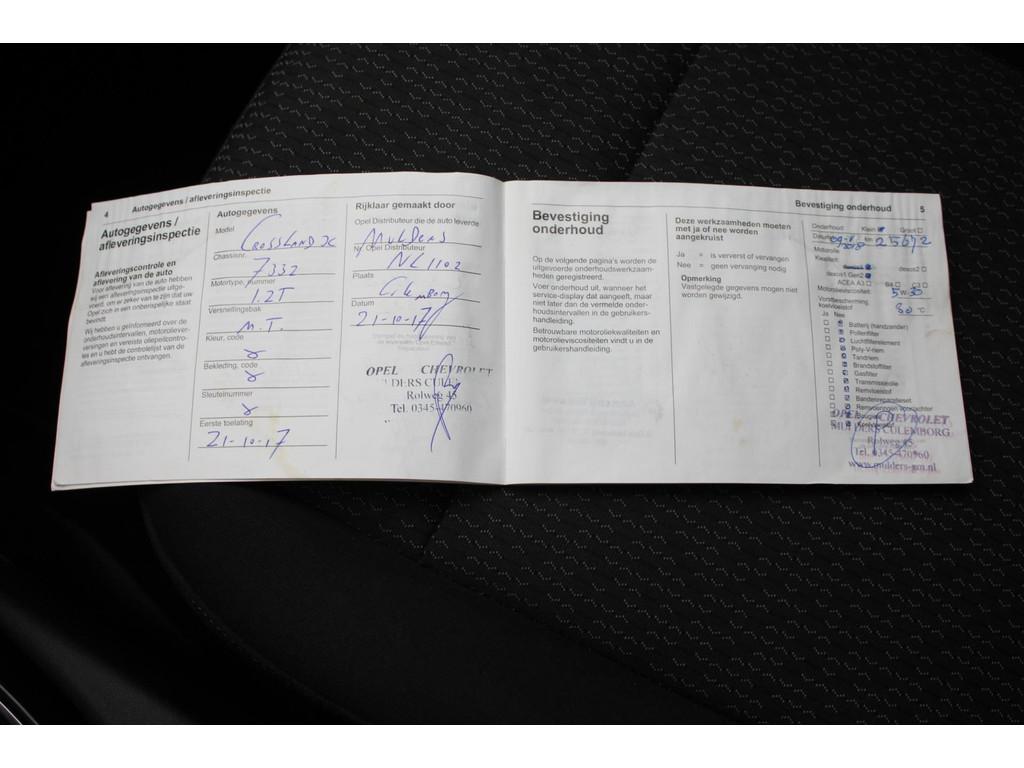 4 Autogegevens / afleveringsinspectie
Autogegevens /
afleveringsinspectie
Afleveringscontrole en
aflevering van de auto
Voor aflevering van de auto hebben
wij een afleveringsinspectie uitge-
voerd, om er zeker van te zijn dat uw
Opel zich in een onberispelijke staat
bevindt.
Wij hebben u geïnformeerd over de
onderhoudsintervallen, motorolever-
versingen en vereiste oliepeilcontro-
les en u hebt de controlelijst van de
afleveringsinspectie ontvangen.
Autogegevens
Model
CROSSLAND X
Chassisnr.
7332
Motortype, nummer
1.2T
Versnellingsbak
M.T.
Kleur, code
Bekleding, code
Sleutelnummer
Eerste toelating
21-10-17
Rijklaar gemaakt door
Opel Distributeur die de auto leverde
MULDERS
Nr. Opel Distributeur
NL1102
Plaats
Culemborg
Datum
21-10-17
OPEL CHEVROLET
DERS CULE
Rolweg 45
Tel. 0345-470960
Bevestiging onderhoud 5
Bevestiging
onderhoud
Op de volgende pagina's worden de
uitgevoerde onderhoudswerkzaam-
heden geregistreerd.
Voer onderhoud uit, wanneer het
service-display dat aangeeft, maar
niet later dan de vermelde onder-
houdsintervallen in de gebruikers-
handleiding.
Betrouwbare motoroliekwaliteiten en
motorolieviscositeiten vindt u in de
gebruikershandleiding.
Deze werkzaamheden moeten
met ja of nee worden
aangekruist
Ja = is ververst of vervangen
Nee = geen vervanging nodig
Opmerking
Vastgelegde gegevens mogen niet
worden gewijzigd.
Onderhoud: Klein Groot
Datum km 25672
2018
Motorolie
Kwaliteit:
dexos2
dexos1 Gen2
ACEA A3 B4 C3
Motorolieviscositeit: 5W-30
Vorstbescherming
koelvloeistof
Ja Nee
Batterij (handzender)
Pollenfilter
Luchtfilterelement
Poly-V-riem
Tandriem
Brandstoffilter
Gasfilter
Transmissieolie
Remvloeistof
Bandenreparatieset
OPEL CHEVROLET
MULDERS CULEMBORG
Rolweg 45
Tel. 0345-470960
www.mulders-gm.nl